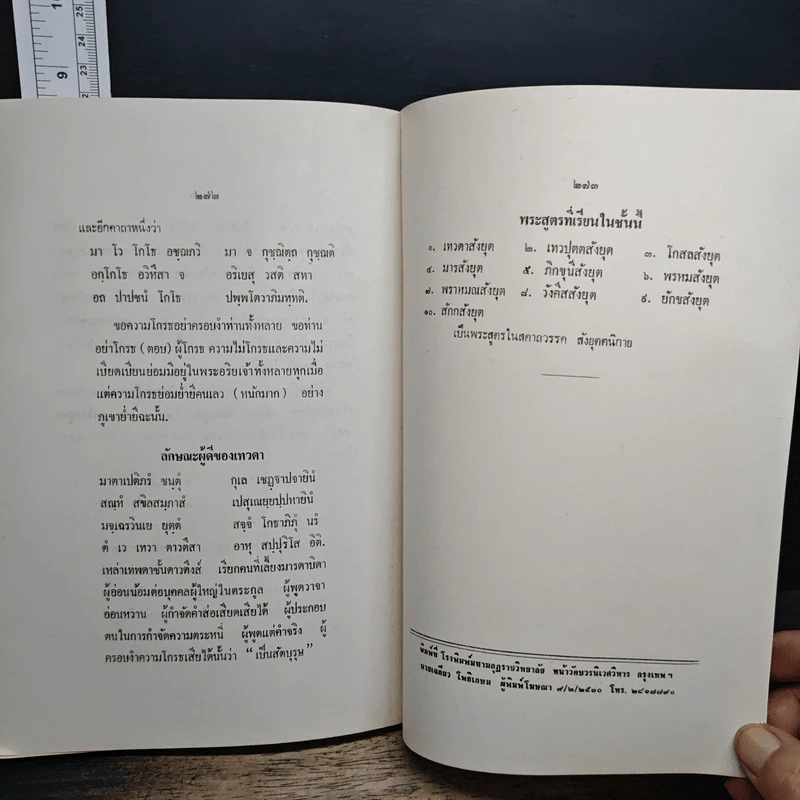 ๒๗๒
และอีกคาถาหนึ่งว่า
มา โว โกโธ อชฺฌภวิ มา จ กุชฺฌิตฺถ กุชฺฌตํ
อกฺโกโธ อวิหึสา จ อริเยสุ วสติ สทา
อถ ปาปชนํ โกโธ ปพฺพโตวาภิมทฺทติ.
ขอความโกรธอย่าครอบงำท่านทั้งหลาย ขอท่าน
อย่าโกรธ (ตอบ) ผู้โกรธ ความไม่โกรธและความไม่
เบียดเบียนย่อมมีอยู่ในพระอริยเจ้าทั้งหลายทุกเมื่อ
แต่ความโกรธย่อมย่ำยีคนเลว (หนักมาก) อย่าง
ภูเขาย่ำยีฉะนั้น.
ลักษณะผู้ดีของเทวดา
มาตาเปติภรํ ชนฺตุํ กุเล เชฏฺฐาปจายินํ
สณฺหํ สขิลสมฺภาสํ เปสุเณยฺยปฺปหายินํ
มจฺเฉรวินเย ยุตฺตํ สจฺจํ โกธาภิภุํ นรํ
ตํ เว เทวา ตาวตึสา อาหุ สปฺปุริโส อิติ.
เหล่าเทพดาชั้นดาวดึงส์ เรียกคนที่เลี้ยงมารดาบิดา
ผู้อ่อนน้อมต่อบุคคลผู้ใหญ่ในตระกูล ผู้พูดวาจา
อ่อนหวาน ผู้กำจัดคำส่อเสียดเสียได้ ผู้ประกอบ
ตนในการกำจัดความตระหนี่ ผู้พูดแต่คำจริง ผู้
ครอบงำความโกรธเสียได้นั้นว่า "เป็นสัตบุรุษ"
๒๗๓
พระสูตรที่เรียนในชั้นนี้
๑. เทวดาสังยุต ๒. เทวปุตตสังยุต ๓. โกสลสังยุต
๔. มารสังยุต ๕. ภิกขุนีสังยุต ๖. พรหมสังยุต
๗. พราหมณสังยุต ๘. วังคีสสังยุต ๙. ยักขสังยุต
๑๐. สักกสังยุต
เป็นพระสูตรในสคาถวรรค สังยุตตนิกาย
พิมพ์ที่ โรงพิมพ์มหามกุฏราชวิทยาลัย หน้าวัดบวรนิเวศวิหาร กรุงเทพ ฯ
นายเฉลียว โพธิเกษม ผู้พิมพ์โฆษณา ๙/๒/๒๕๓๐ โทร. ๒๘๑๗๘๙๐
10
9
25
24
23